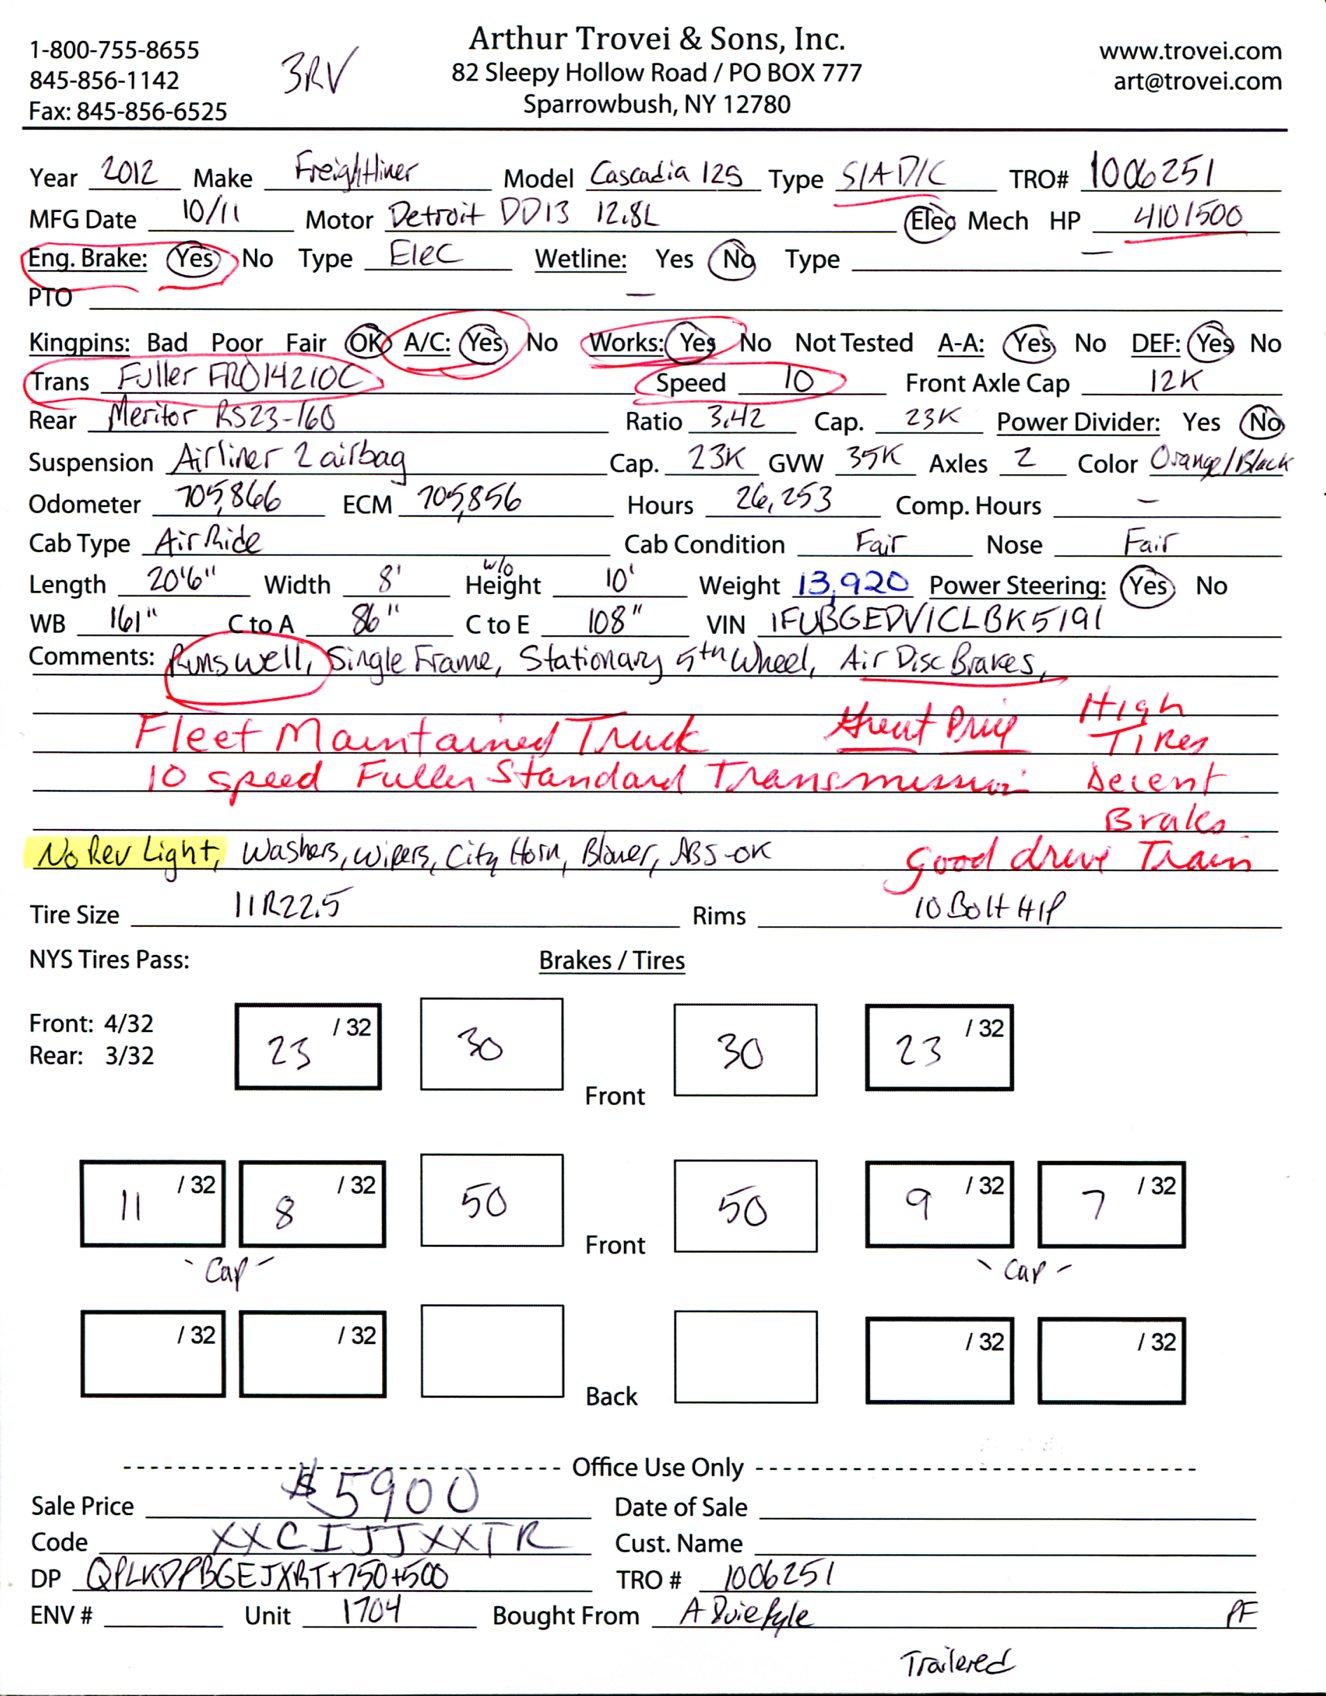 Arthur Trovei & Sons, Inc.
1-800-755-8655 3RV 82 Sleepy Hollow Road / PO BOX 777 www.trovei.com
845-856-1142 Sparrowbush, NY 12780 art@trovei.com
Fax: 845-856-6525
Year 2012 Make Freightliner Model Cascadia 125 Type S/A D/C TRO# 1006251
MFG Date 10/11 Motor Detroit DD13 12.8L Elec Mech HP 410/500
Eng. Brake: Yes No Type Elec Wetline: Yes No Type —
PTO —
Kingpins: Bad Poor Fair OK A/C: Yes No Works: Yes No Not Tested A-A: Yes No DEF: Yes No
Trans Fuller FRO14210C Speed 10 Front Axle Cap 12K
Rear Meritor RS23-160 Ratio 3.42 Cap. 23K Power Divider: Yes No
Suspension Airliner 2 airbag Cap. 23K GVW 35K Axles 2 Color Orange/Black
Odometer 705,866 ECM 705,856 Hours 26,253 Comp. Hours —
Cab Type Air Ride Cab Condition Fair Nose Fair
Length 20'6" Width 8' w/o Height 10' Weight 13,920 Power Steering: Yes No
WB 161" C to A 86" C to E 108" VIN 1FUBGEDV1CLBK5191
Comments: Runs well, Single Frame, Stationary 5th Wheel, Air Disc Brakes,
Fleet Maintained Truck Great Price High Tires
10 speed Fuller Standard Transmission Decent Brakes
No Rev Light, Washers, Wipers, City Horn, Blower, ABS-OK Good drive Train
Tire Size 11R22.5 Rims 10 Bolt H/P
NYS Tires Pass: Brakes / Tires
Front: 4/32
Rear: 3/32
23 /32 30 Front 30 23 /32
11 /32 8 /32 50 Front 50 9 /32 7 /32
- Cap - - Cap -
/32 /32 Back /32 /32
Office Use Only
Sale Price $5900 Date of Sale
Code XXCIJJXXTR Cust. Name
DP QPLKDPBGEJXRT+750+500 TRO # 1006251
ENV # Unit 1704 Bought From PF
Trailered